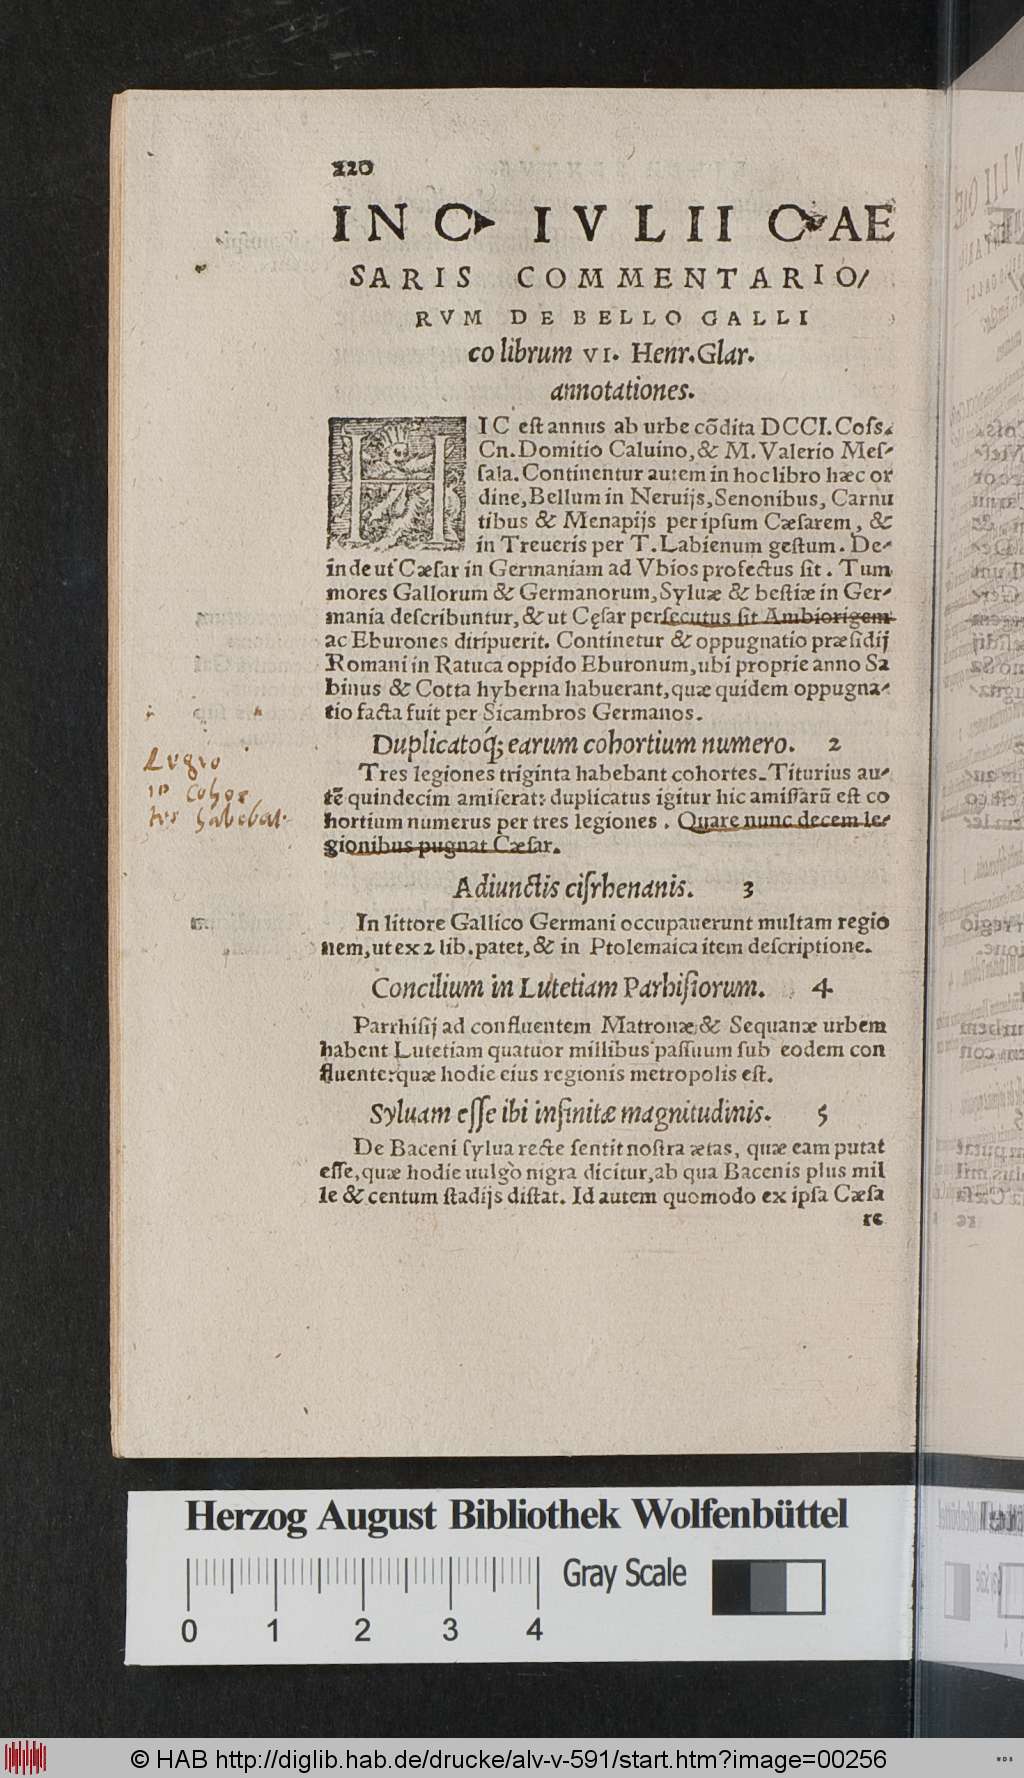 220
IN C. IVLII CAE
SARIS COMMENTARIO/
RVM DE BELLO GALLI
co librum VI. Henr. Glar.
annotationes.
HIC est annus ab urbe cõdita DCCI. Coss.
Cn. Domitio Caluino, & M. Valerio Mes-
sala. Continentur autem in hoc libro hæc or
dine, Bellum in Neruijs, Senonibus, Carnu
tibus & Menapijs per ipsum Cæsarem, &
in Treueris per T. Labienum gestum. De-
inde ut Cæsar in Germaniam ad Vbios profectus sit. Tum
mores Gallorum & Germanorum, Syluæ & bestiæ in Ger-
mania describuntur, & ut Cęsar persecutus sit Ambiorigem
ac Eburones diripuerit. Continetur & oppugnatio præsidij
Romani in Ratuca oppido Eburonum, ubi proprie anno Sa
binus & Cotta hyberna habuerant, quæ quidem oppugna-
tio facta fuit per Sicambros Germanos.
Duplicatoq́; earum cohortium numero. 2
Tres legiones triginta habebant cohortes. Titurius au-
tẽ quindecim amiserat: duplicatus igitur hic amissarũ est co
hortium numerus per tres legiones. Quare nunc decem le-
gionibus pugnat Cæsar.
Legio
10 Cohor
tes habebat.
Adiunctis cisrhenanis. 3
In littore Gallico Germani occupauerunt multam regio
nem, ut ex 2 lib. patet, & in Ptolemaica item descriptione.
Concilium in Lutetiam Parhisiorum. 4
Parrhisij ad confluentem Matronæ & Sequanæ urbem
habent Lutetiam quatuor millibus passuum sub eodem con
fluente: quæ hodie eius regionis metropolis est.
Syluam esse ibi infinitæ magnitudinis. 5
De Baceni sylua recte sentit nostra ætas, quæ eam putat
esse, quæ hodie uulgò nigra dicitur, ab qua Bacenis plus mil
le & centum stadijs distat. Id autem quomodo ex ipsa Cæsa
re
Herzog August Bibliothek Wolfenbüttel
Gray Scale
0 1 2 3 4
© HAB http://diglib.hab.de/drucke/alv-v-591/start.htm?image=00256